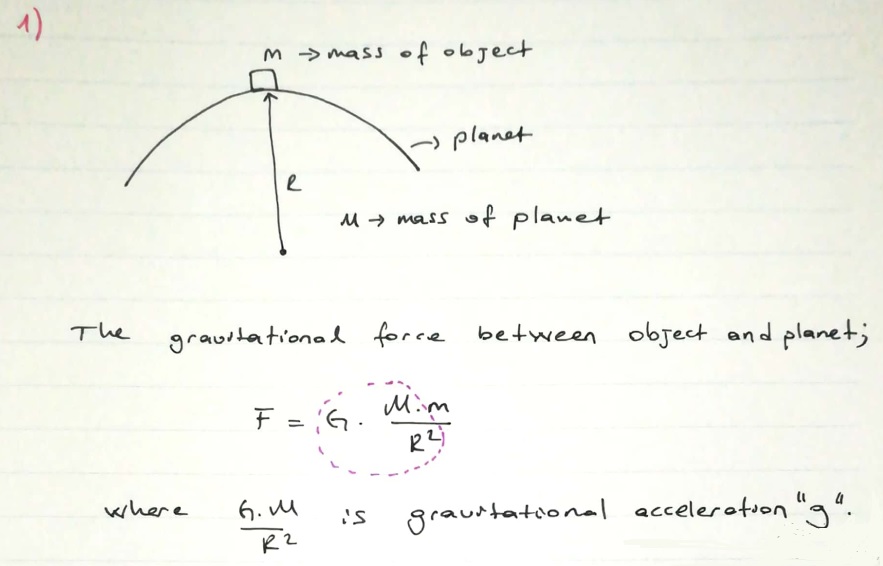 1)
m → mass of object
→ planet
R
M → mass of planet
The gravitational force between object and planet;
F = G . M.m / R²
where G.M / R² is gravitational acceleration "g".